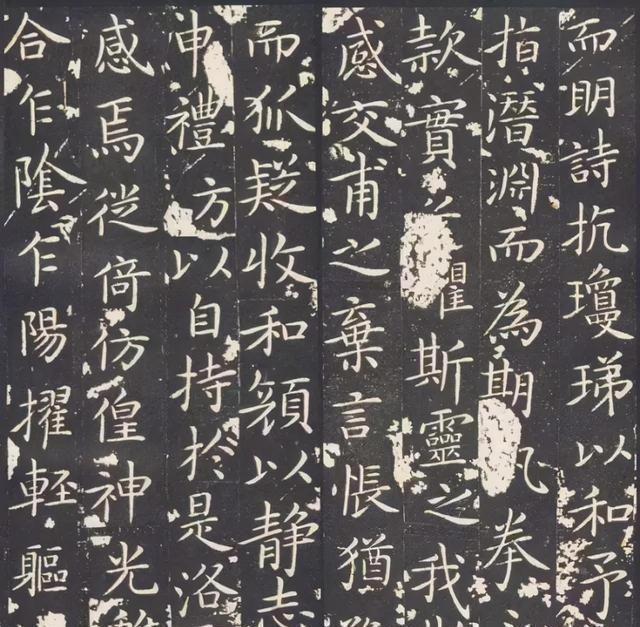 而明詩抗瓊珶以和予
指潛淵而為期拳
款實斯靈之我
感交甫之棄言悵猶
而狐疑收和顏以静志
申禮方以自持於是洛
感焉徙倚仿偟神光
合乍陰乍陽擢輕軀